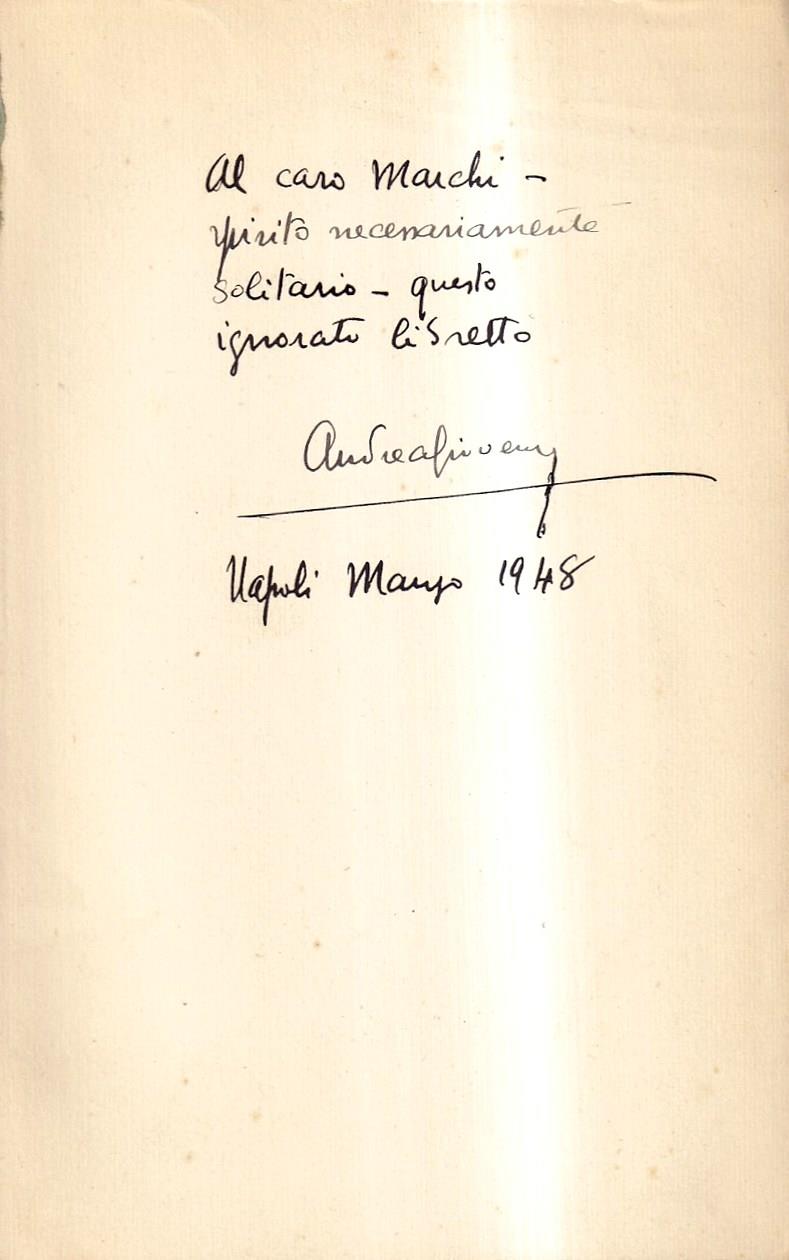 Al caro Marchi –
spirito necessariamente
solitario – questo
ignorato libretto
Andrea Giovene
Napoli Marzo 1948